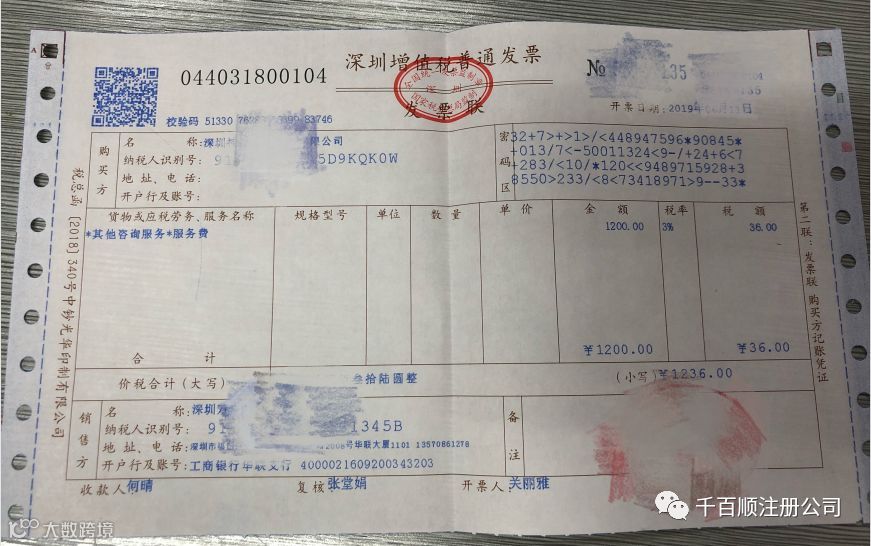 044031800104
深圳增值税普通发票
发票联
№ 135
校验码 51330
83746
开票日期:2019年
全国统一发票监制章
深圳
购买方
名 称:深圳 有限公司
纳税人识别号: 91 5D9KQK0W
地 址、电 话:
开户行及账号:
密码区
32+7>+>1>/<448947596*90845*
+013/7<-50011324<9-/+24+6<7
+283/<10/*120<<9489715928+3
8550>233/<8<73418971>9--33*
货物或应税劳务、服务名称 规格型号 单位 数 量 单 价 金 额 税率 税 额
*其他咨询服务*服务费 1200.00 3% 36.00
合 计 ¥1200.00 ¥36.00
价税合计(大写) 叁拾陆圆整 (小写)¥1236.00
销售方
名 称:深圳
纳税人识别号: 91 1345B
地 址、电 话:深圳市福 2008号华联大厦1101 13570861278
开户行及账号:工商银行华联支行 4000021609200343203
备注
收款人:何晴 复核:张堂娟 开票人:关丽雅
税总函〔2018〕340号中钞光华印制有限公司
第二联:发票联 购买方记账凭证
千百顺注册公司
大数跨境